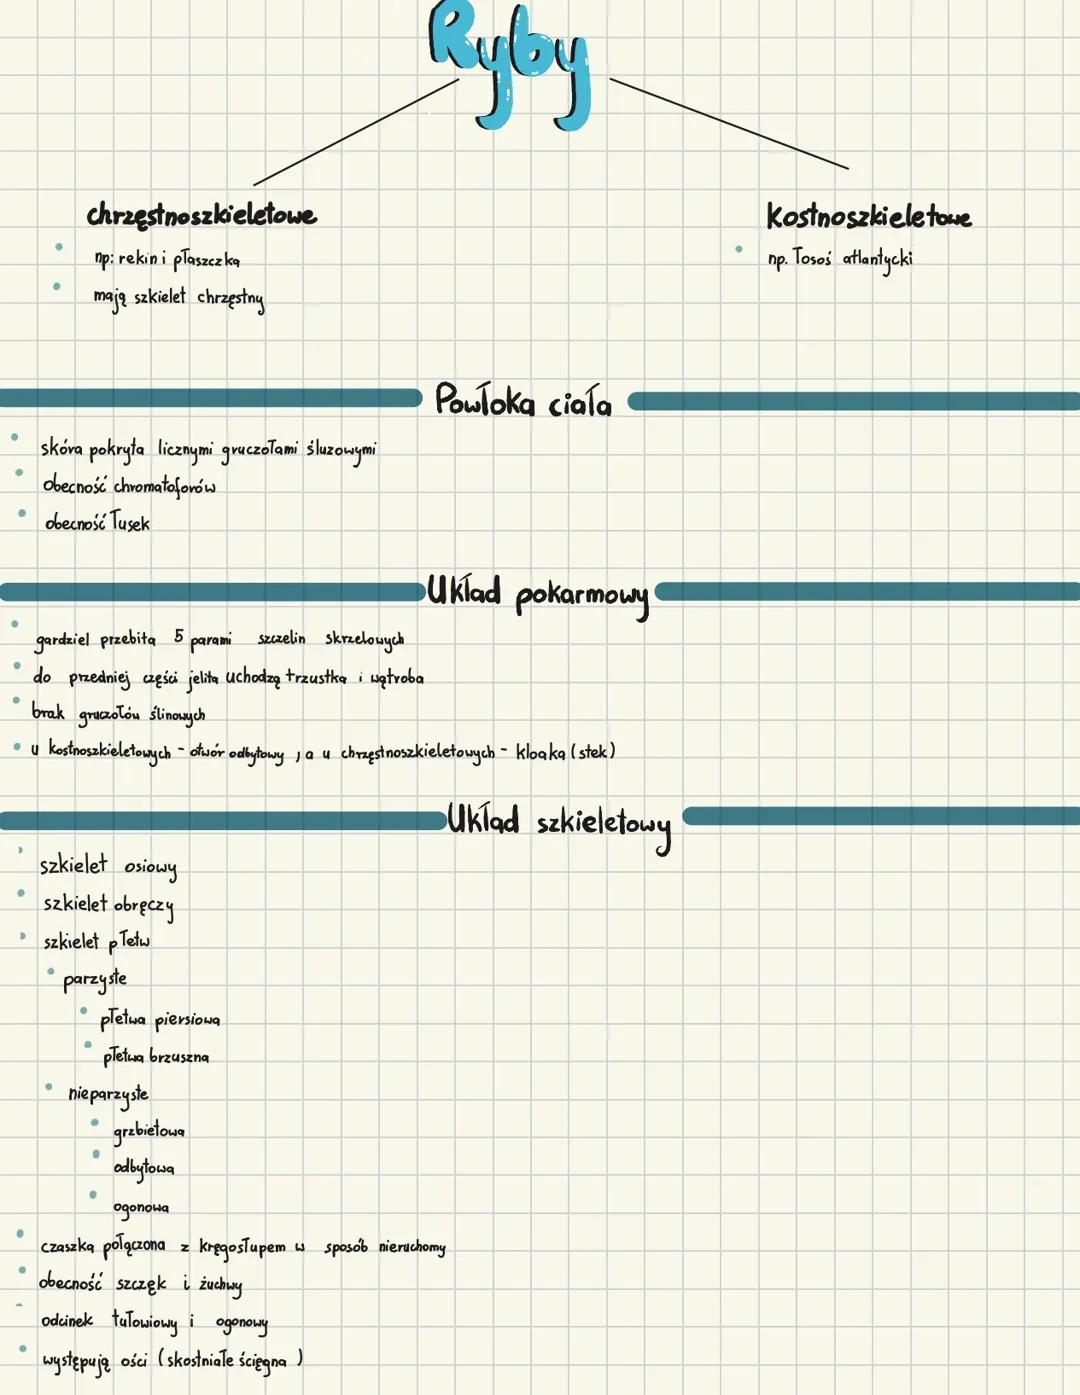 Ryby
chrzęstnoszkieletowe
np: rekin i płaszczka
mają szkielet chrzęstny
Kostnoszkieletowe
np. łosoś atlantycki
Powłoka ciała
skóra pokryta licznymi gruczołami śluzowymi
obecność chromatoforów
obecność łusek
Układ pokarmowy
gardziel przebita 5 parami szczelin skrzelowych
do przedniej części jelita uchodzą trzustka i wątroba
brak gruczołów ślinowych
u kostnoszkieletowych - otwór odbytowy, a u chrzęstnoszkieletowych - kloaka (stek)
Układ szkieletowy
szkielet osiowy
szkielet obręczy
szkielet płetw
parzyste
płetwa piersiowa
płetwa brzuszna
nieparzyste
grzbietowa
odbytowa
ogonowa
czaszka połączona z kręgosłupem w sposób nieruchomy
obecność szczęk i żuchwy
odcinek tułowiowy i ogonowy
występują ości (skostniałe ścięgna)